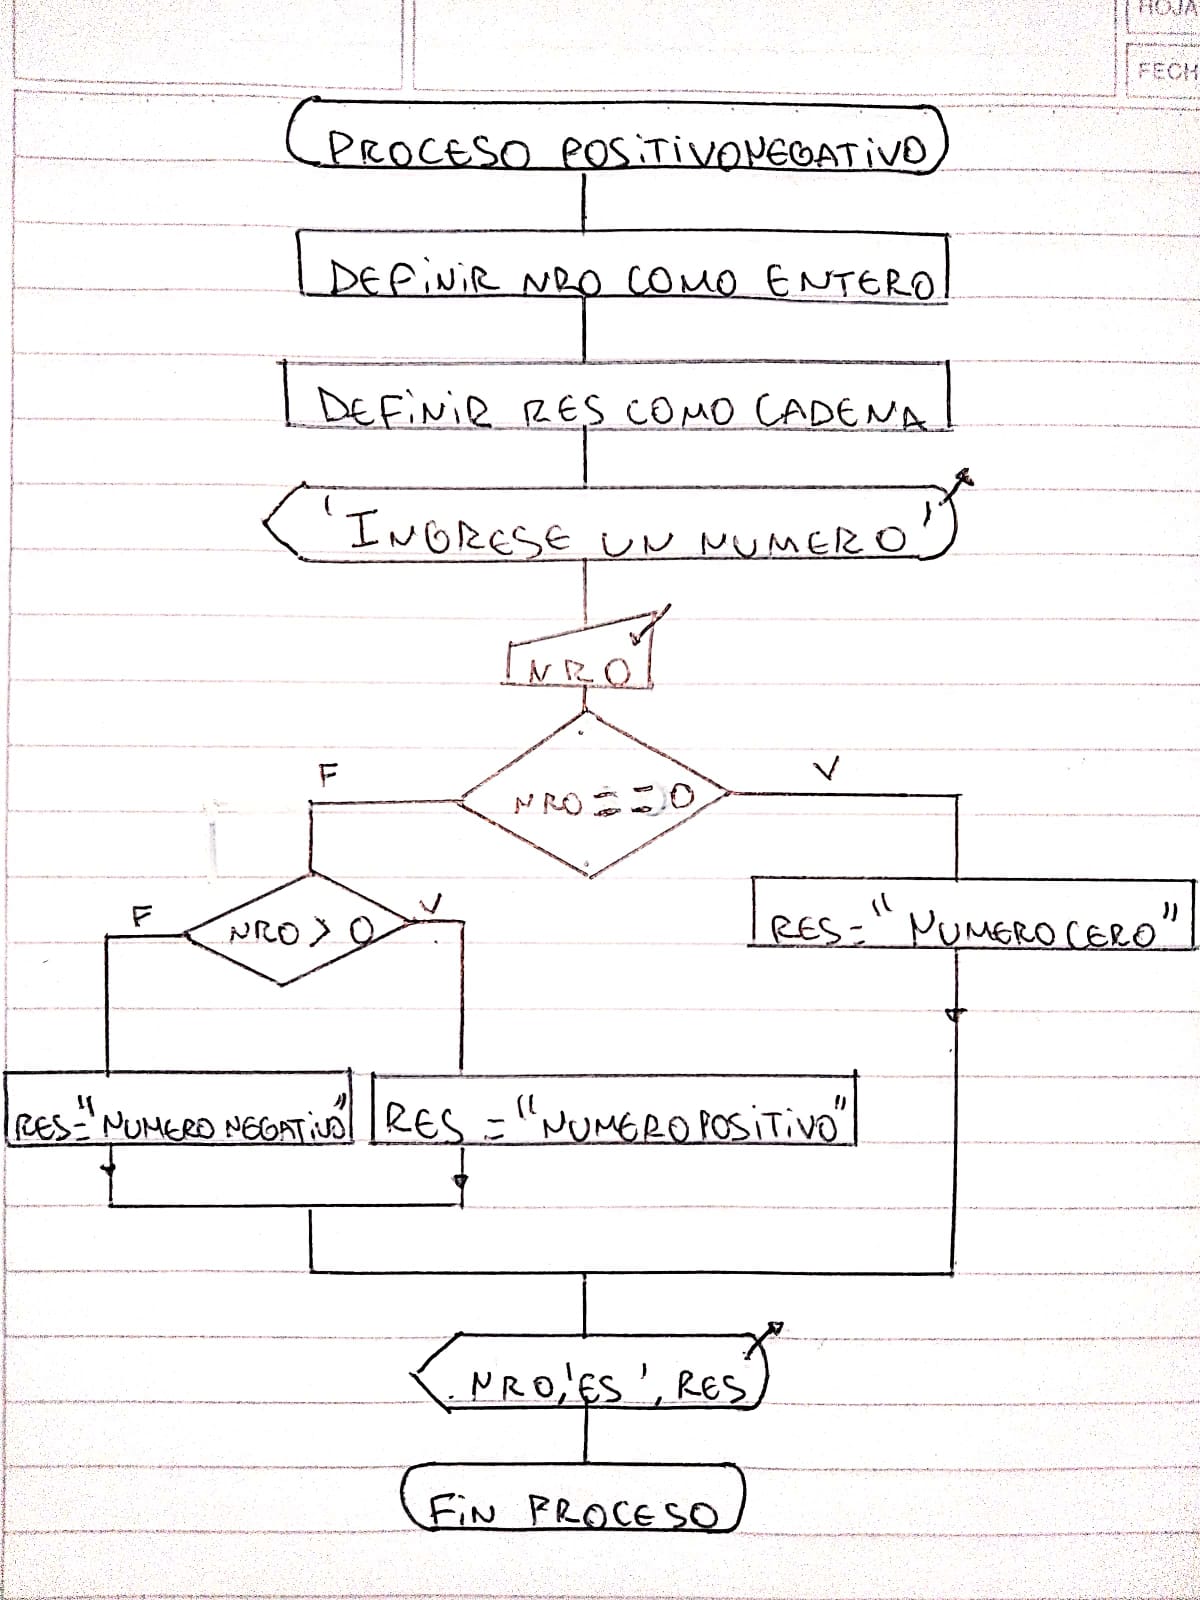 HOJA
FECH
PROCESO POSITIVONEGATIVO
DEFINIR NRO COMO ENTERO
DEFINIR RES COMO CADENA
'INGRESE UN NUMERO'
NRO
F
NRO == 0
V
F
NRO > 0
V
RES = "NUMERO CERO"
RES = "NUMERO NEGATIVO"
RES = "NUMERO POSITIVO"
NRO, 'ES', RES
FIN PROCESO